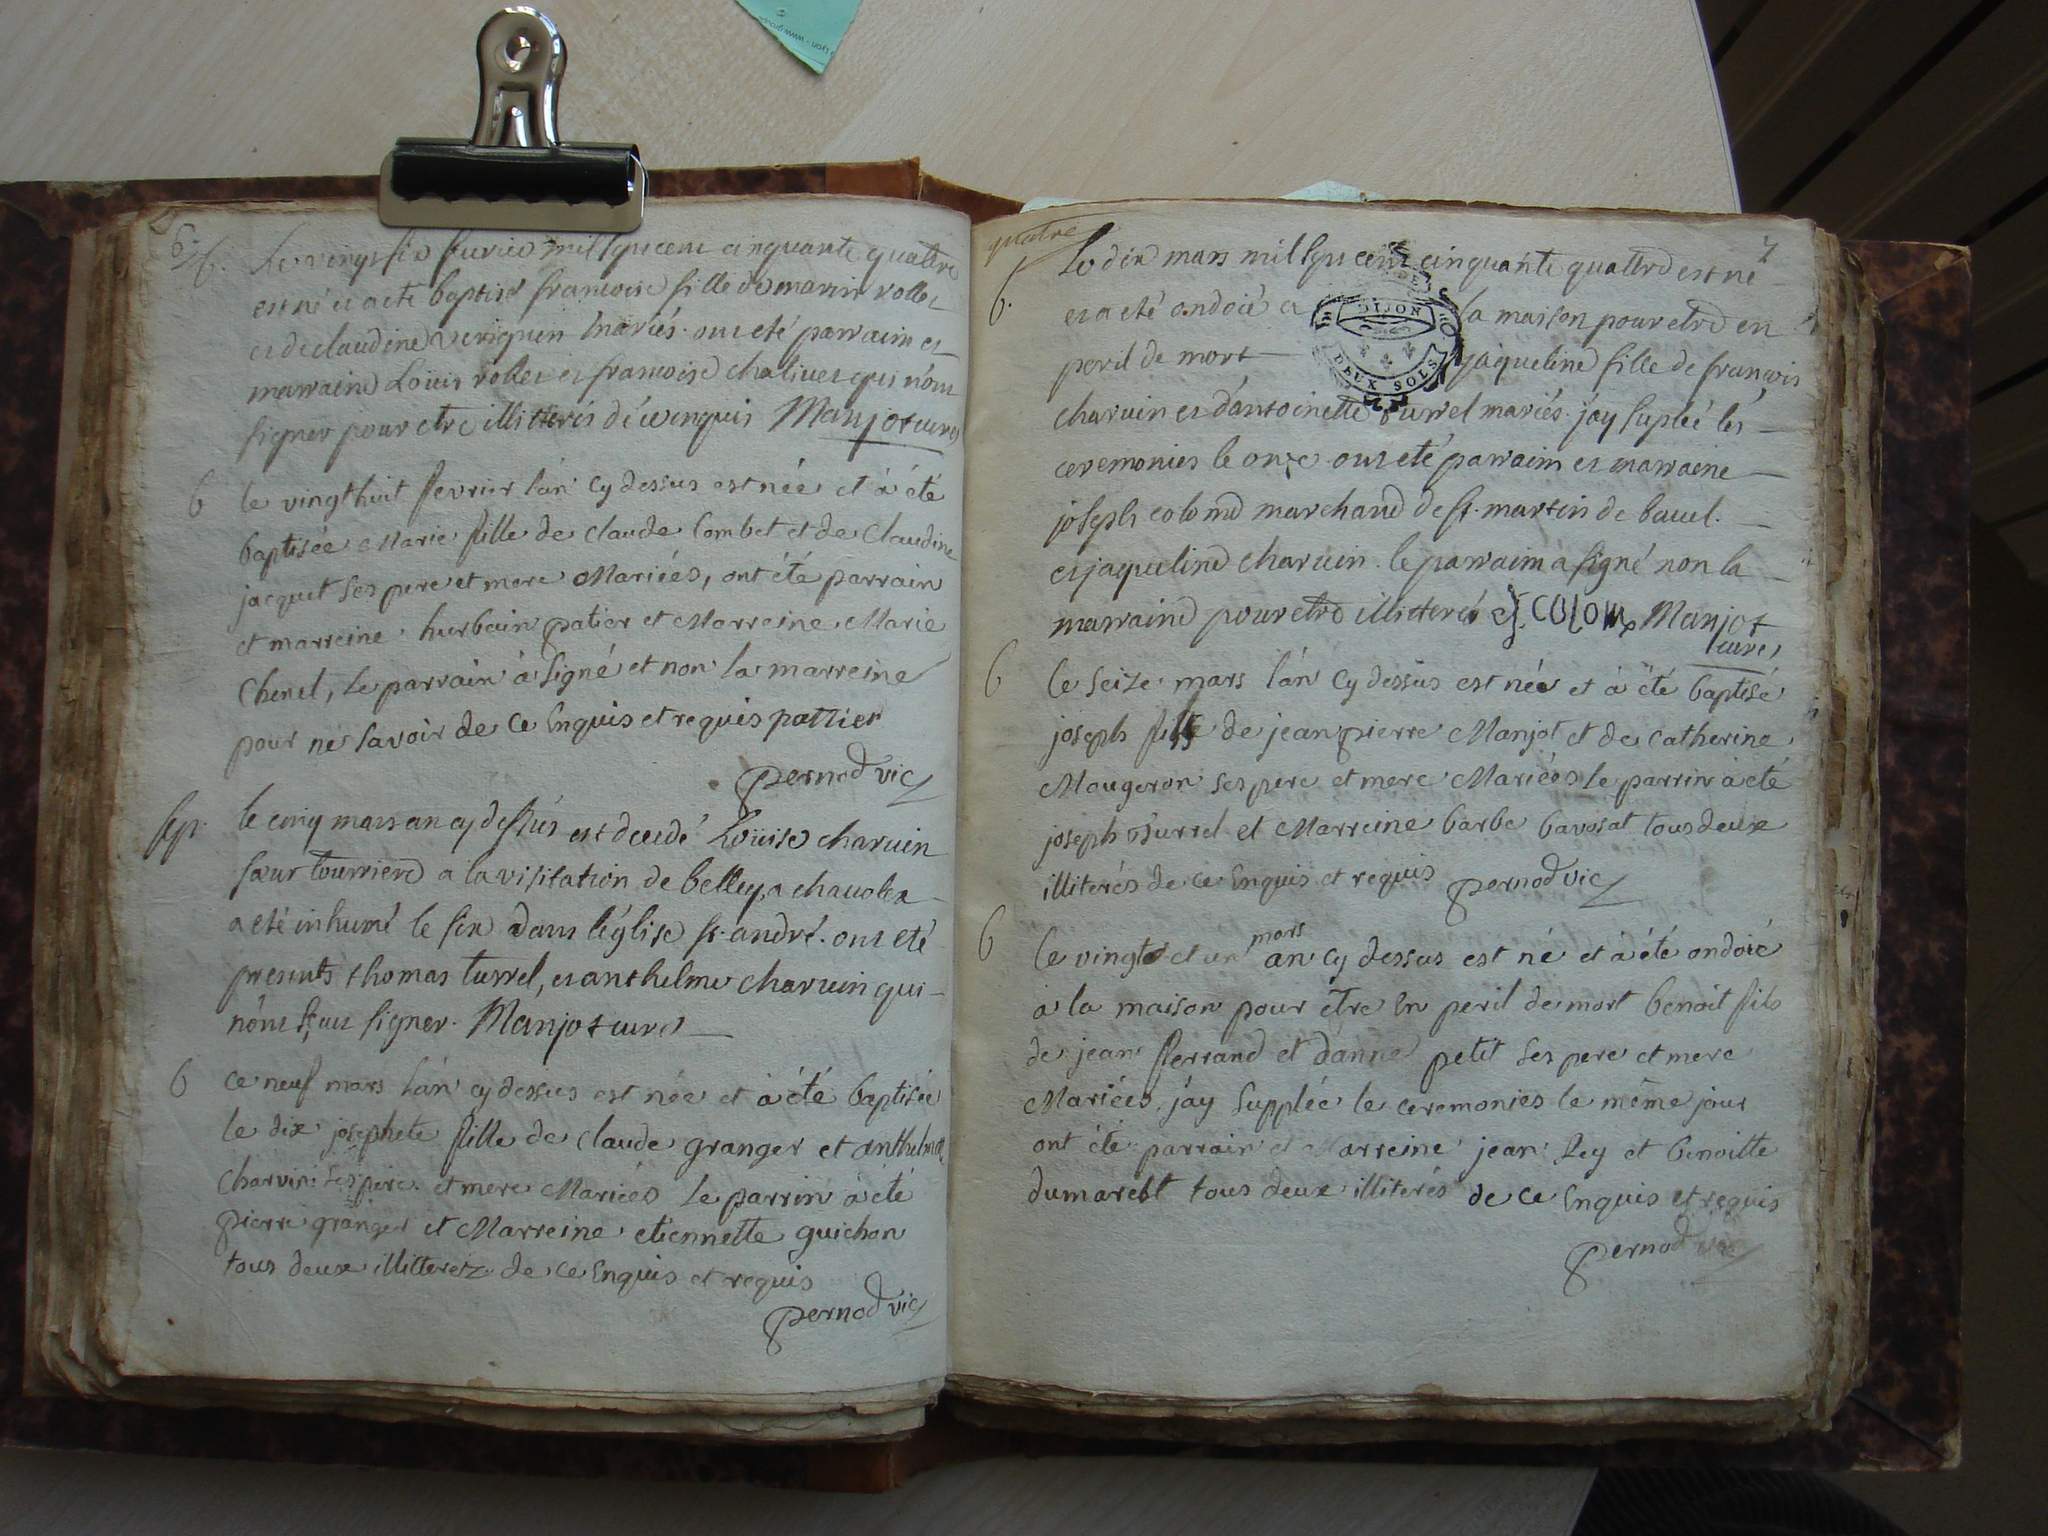 6
b. Le vingt six fevrier mil sept cent cinquante quattre
est né et a eté baptisé francoise fille de marin rollet
et de claudine veriquin mariés. ont eté parrain et
marraine Louis rollet et francoise chalivet qui n'ont
signer pour etre illitterés dé ce enquis Manjot curé
b le vingt huit fevrier l'án cy dessus est née et à été
baptisée Marie fille de claude Combet et de Claudine
jacquet ses pere et mere Mariées, ont été parrain
et marreine hurbain patier et Marreine Marie
Chenel, le parrain à signé et non la marreine
pour ne savoir de ce Enquis et requis pattier
pernod vic
sep. le cinq mars an cy dessus est decedé Loüise charvin
sœur tourriere a la visitation de belley, a chavolex
a eté inhumé le six dans l'église st. andré. ont eté
presents thomas turrel, et anthelme charvin qui
n'ont sçu signer. Manjot curé
b ce neuf mars l'án cy dessus est née et à été baptisée
le dix josephete fille de claude granger et anthelmette
Charvin ses pere et mere Mariées le parrin à été
pierre granger et Marreine etiennette guichon
tous deux illitterez de ce Enquis et requis
pernod vic
quatre
7
b. Le dix mars mil sept cent cinquante quattre est né
et a eté ondoié a la maison pour etre en
peril de mort jaqueline fille de francois
DIJON
DEUX SOLS
charvin et d'antoinette turrel mariés. j'ay suplée les
ceremonies le onze ont eté parraim et marraine
joseph colomd marchand de st. martin de bavel.
et jaqueline charvin. le parraim a signé non la
marraine pour etre illitteré J. COLOM Manjot
curé
b le seize mars l'án cy dessus est née et à été baptisé
joseph fils de jean pierre Manjot et de catherine
Maugeron ses pere et mere Mariées le parrin à été
joseph turrel et Marreine barbe bavosat tous deux
illiterés de ce Enquis et requis pernod vic
b le vingt et un mars an cy dessus est né et à été ondoié
à la maison pour être en peril de mort benoit fils
de jean ferrand et d'anne petit ses pere et mere
Mariées, j'ay Supplée le ceremonies le même jour
ont été parrain et Marreine jean Rey et benoitte
dumarest tous deux illiterés de ce Enquis et requis
pernod vic